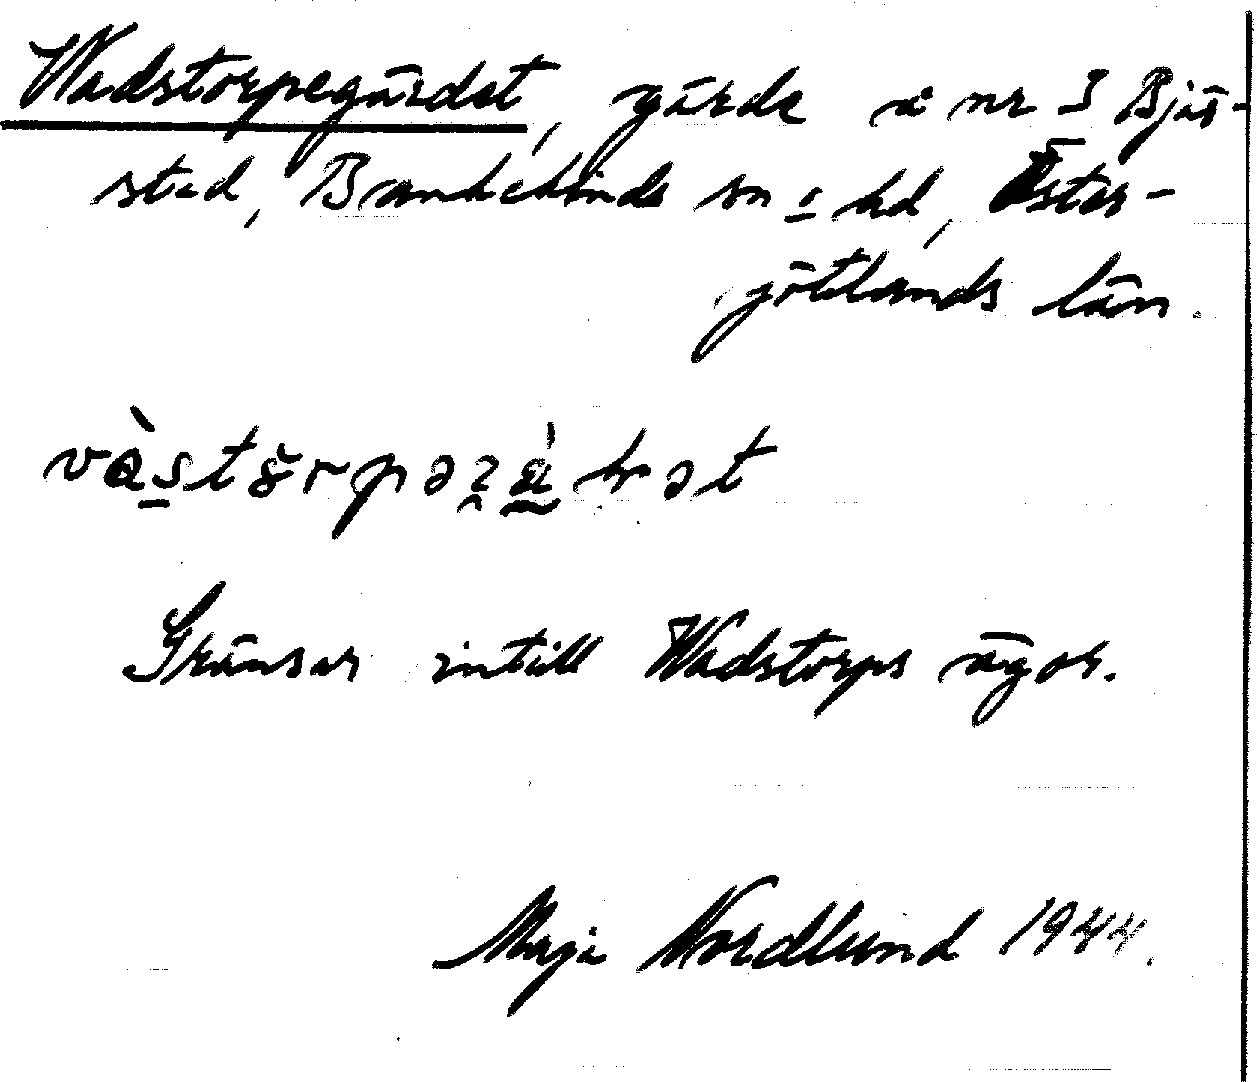 Wadstorpegärdet, gärde i nr 3 Bjär-
sted, Bankekinds sn o hd, Öster-
götlands län.
Gränsar intill Wadstorps ägor.
Maja Nordlund 1944.